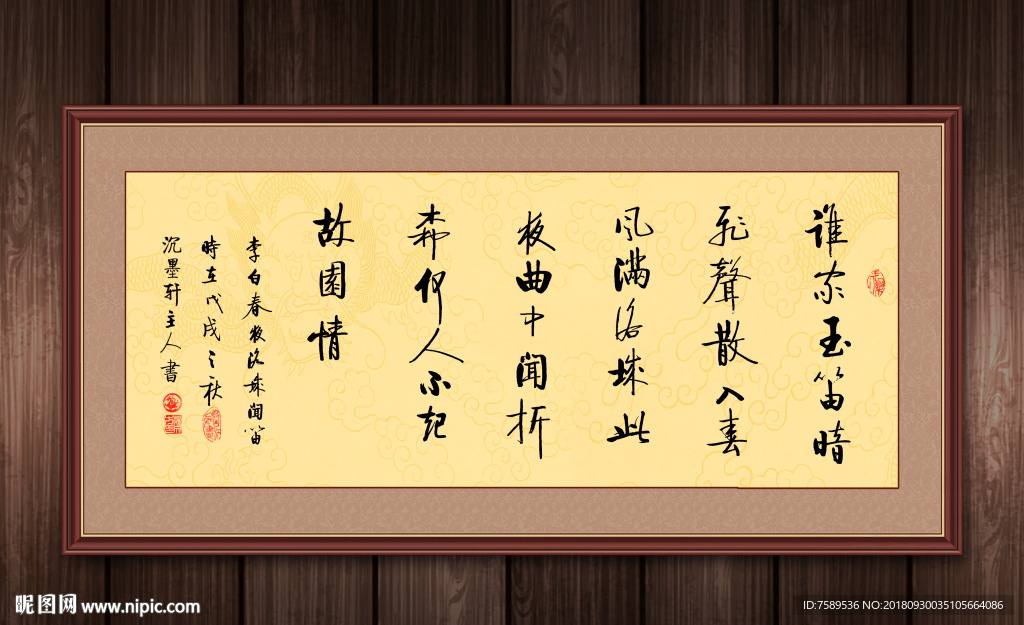 誰家玉笛暗
飛聲散入春
風滿洛城此
夜曲中聞折
柳何人不起
故園情
李白春夜洛城聞笛
時在戊戌之秋
沉墨軒主人書
昵图网 www.nipic.com
ID:7589536 NO:20180930035105664086